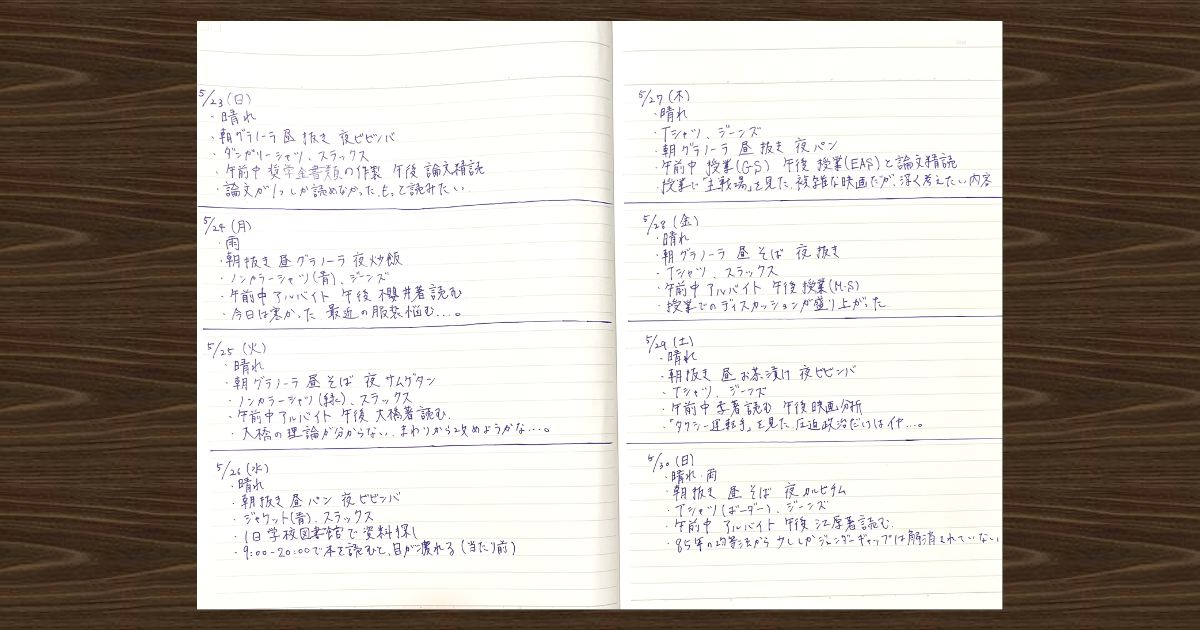 5/23(日)
・晴れ
・朝グラノーラ 昼 抜き 夜ビビンバ
・ダンガリーシャツ、スラックス
・午前中 奨学金書類の作製 午後 論文精読
・論文が1つしか読めなかった。もっと読みたい。
5/24(月)
・雨
・朝抜き 昼グラノーラ 夜炒飯
・ノンカラーシャツ(青)、ジーンズ
・午前中アルバイト 午後 櫻井著読む
・今日は寒かった 最近の服装悩む…。
5/25(火)
・晴れ
・朝グラノーラ 昼そば 夜サムゲタン
・ノンカラーシャツ(緑)、スラックス
・午前中アルバイト 午後 大橋著読む。
・大橋の理論が分からない。まわりから攻めようかな…。
5/26(水)
・晴れ
・朝抜き 昼パン 夜ビビンバ
・ジャケット(青)、スラックス
・1日学校図書館で資料探し
・9:00-20:00で本を読むと、目が疲れる(当たり前)
5/27(木)
・晴れ
・Tシャツ、ジーンズ
・朝グラノーラ 昼 抜き 夜パン
・午前中 授業(GS) 午後 授業(EAS)と論文精読
・授業に「主戦場」を見た。複雑な映画だが、深く考えたい内容
5/28(金)
・晴れ
・朝グラノーラ 昼そば 夜抜き
・Tシャツ、スラックス
・午前中アルバイト 午後授業(M・S)
・授業でのディスカッションが盛り上がった
5/29(土)
・晴れ
・朝抜き 昼お茶漬け 夜ビビンバ
・Tシャツ、ジーンズ
・午前中李著読む 午後映画分析
・「タクシー運転手」を見た。圧迫政治だけはイヤ…。
5/30(日)
・晴れ・雨
・朝抜き 昼そば 夜カルビチム
・Tシャツ(ボーダー)、ジーンズ
・午前中 アルバイト 午後 江原著読む。
・85年の均等法から少ししかジェンダーギャップは解消されていない